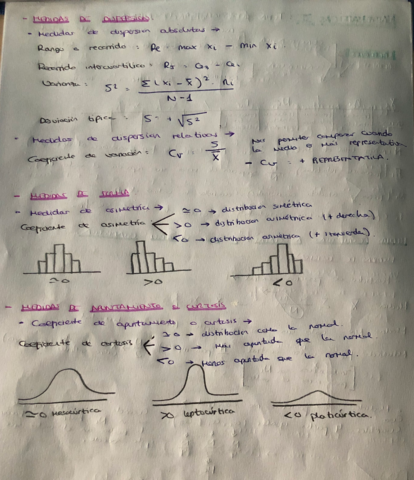 - MEDIDAS DE DISPERSIÓN
- Medidas de dispersión absolutas →
Rango o recorrido: Re = max xi - min xi
Recorrido intercuartílico: RI = Q3 - Q1
Varianza: S² = Σ(xi - x̄)² · ni / N-1
Desviación típica: S = +√S²
- Medidas de dispersión relativas →
Coeficiente de variación: Cv = S / x̄
Nos permite comparar cuando
la media es más representativa
- Cv + REPRESENTATIVA.
- MEDIDAS DE FORMA
- Medidas de asimetría →
Coeficiente de asimetría
≃0 → distribución simétrica
>0 → distribución asimétrica (+ derecha)
<0 → distribución asimétrica (+ izquierda)
≃0 >0 <0
- MEDIDAS DE APUNTAMIENTO O CURTOSIS
- Coeficiente de apuntamiento o curtosis →
Coeficiente de curtosis
≃0 → distribución como la normal.
>0 → Más apuntada que la normal
<0 → Menos apuntada que la normal.
≃0 Mesocúrtica >0 leptocúrtica <0 platicúrtica.